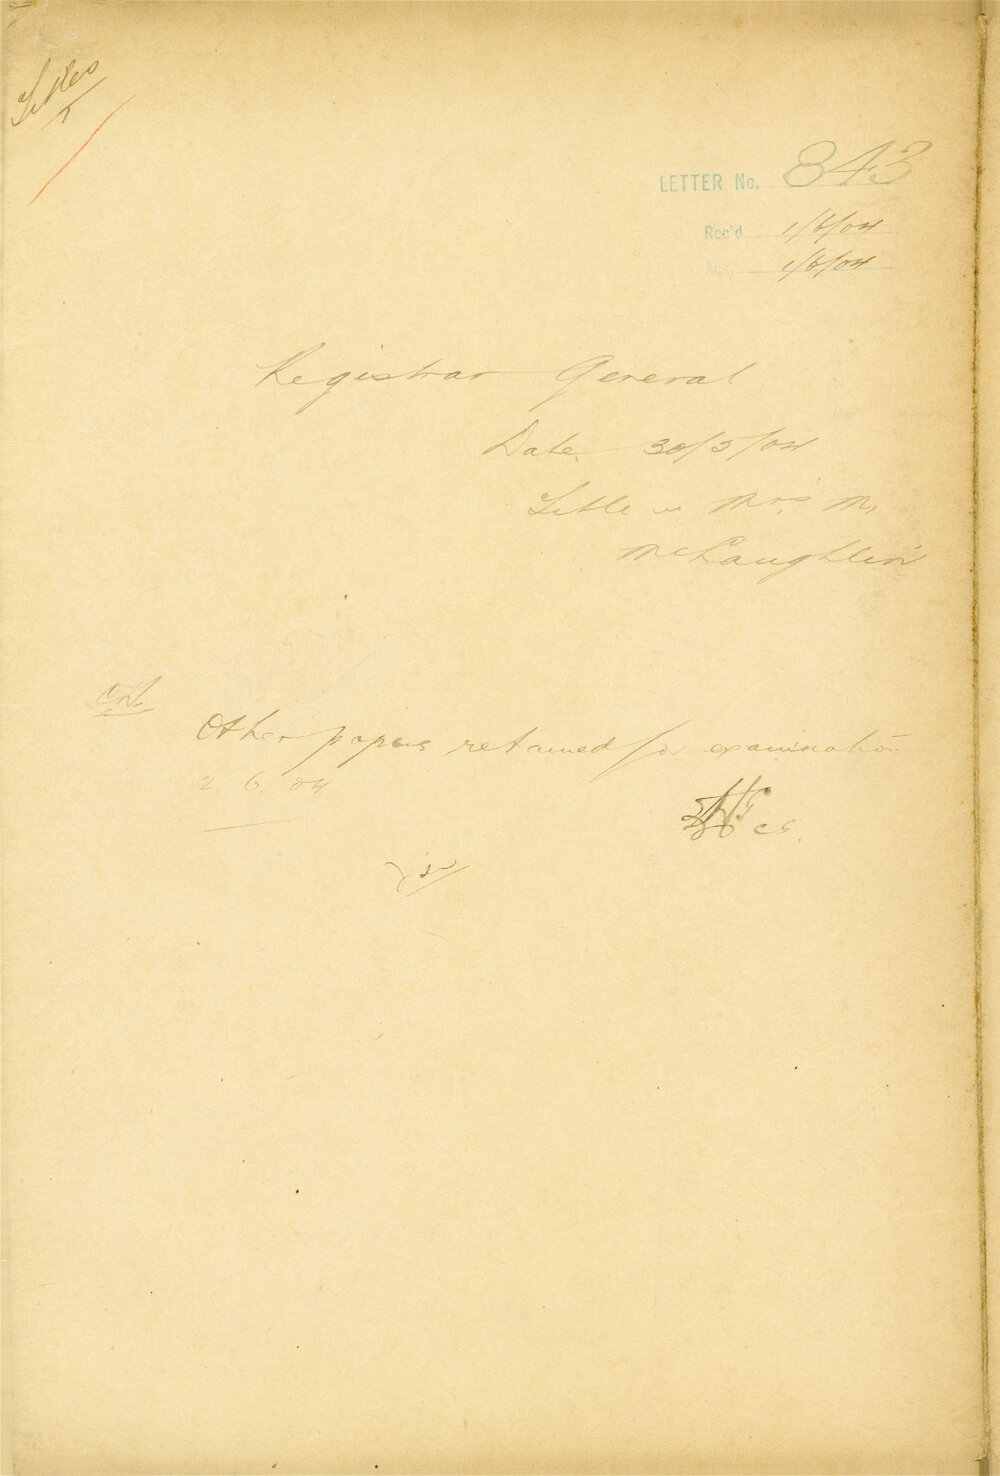 Titles
LETTER No. 843
Rec'd 1/6/04
Ack. 1/6/04
Registrar General
Date. 30/5/04
Title is Mrs. M.
McLaughlin
Other papers retained for examination
2 6. 04